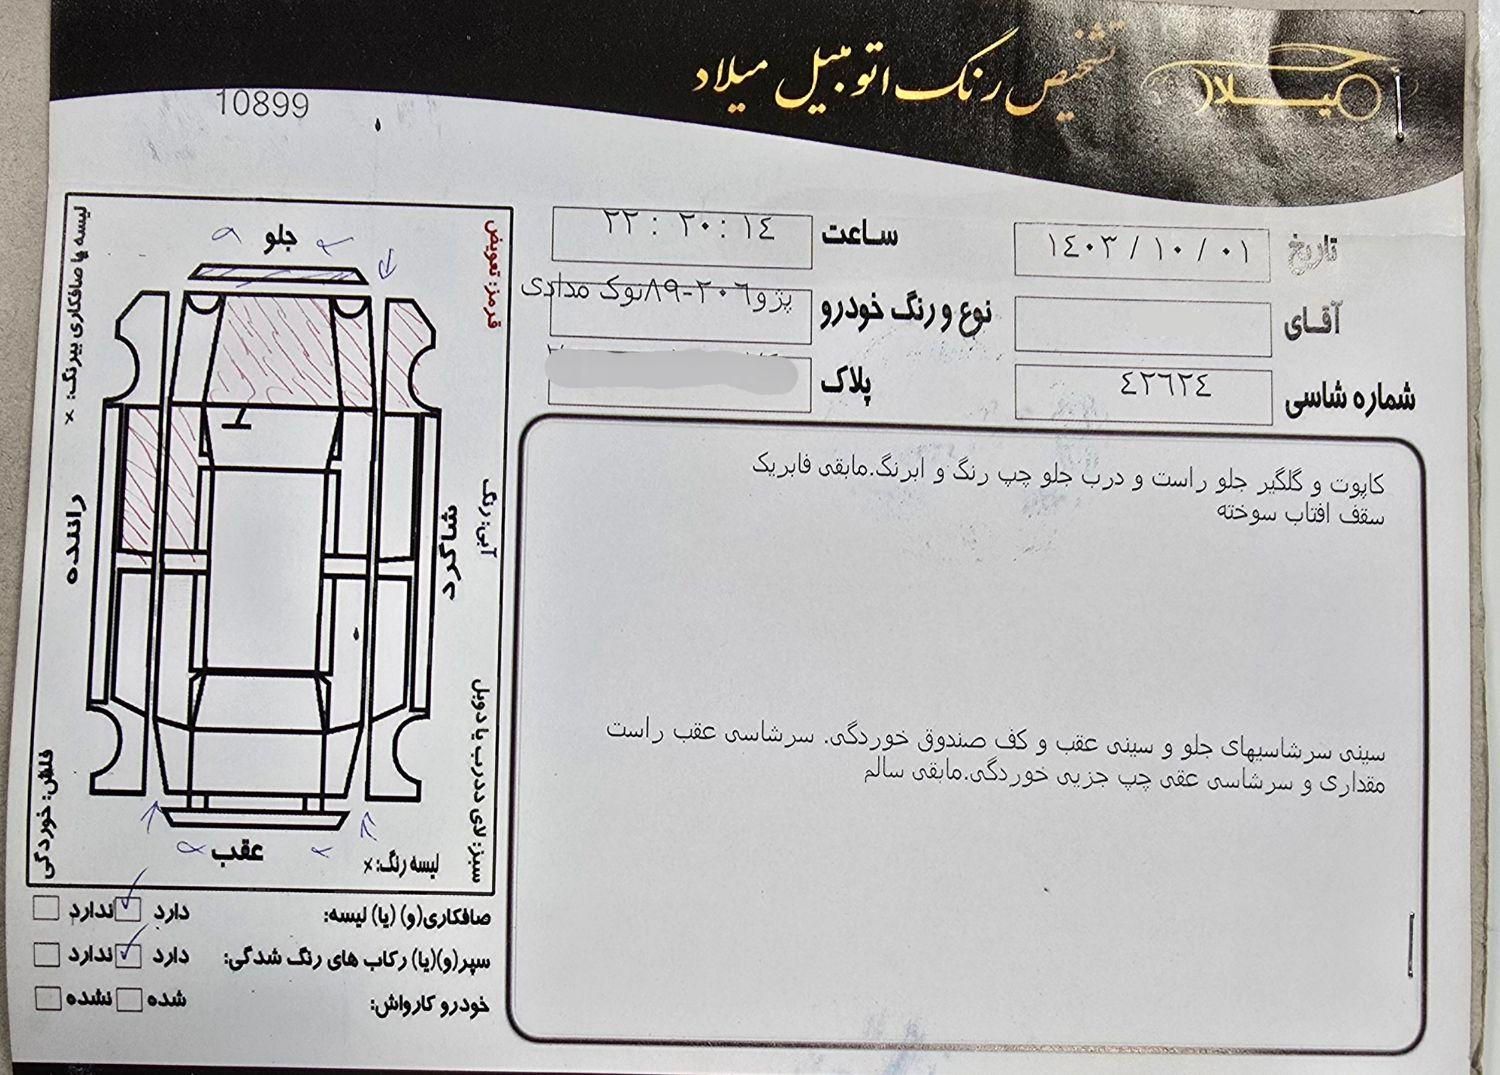 تشخیص رنگ اتومبیل میلاد
میلاد
10899
تاریخ
١٤٠٣ / ١٠ / ٠١
ساعت
٢٢ : ٢٠ : ١٤
آقای
نوع و رنگ خودرو
پژو٢٠٦-٨٩نوک مدادی
شماره شاسی
٤٢٦٢٤
پلاک
کاپوت و گلگیر جلو راست و درب جلو چپ رنگ و ابرنگ.مابقی فابریک
سقف افتاب سوخته
سینی سرشاسیهای جلو و سینی عقب و کف صندوق خوردگی. سرشاسی عقب راست
مقداری و سرشاسی عقی چپ جزیی خوردگی.مابقی سالم
جلو
قرمز: تعویض
آبی: رنگ
سبز: لای ددرب یا دوبل
لیسه یا صافکاری بیرنگ: x
راننده
شاگرد
فلش: خوردگی
عقب
لیسه رنگ: x
صافکاری(و) (یا) لیسه: دارد ندارد
سپر(و)(یا) رکاب های رنگ شدگی: دارد ندارد
خودرو کارواش: شده نشده